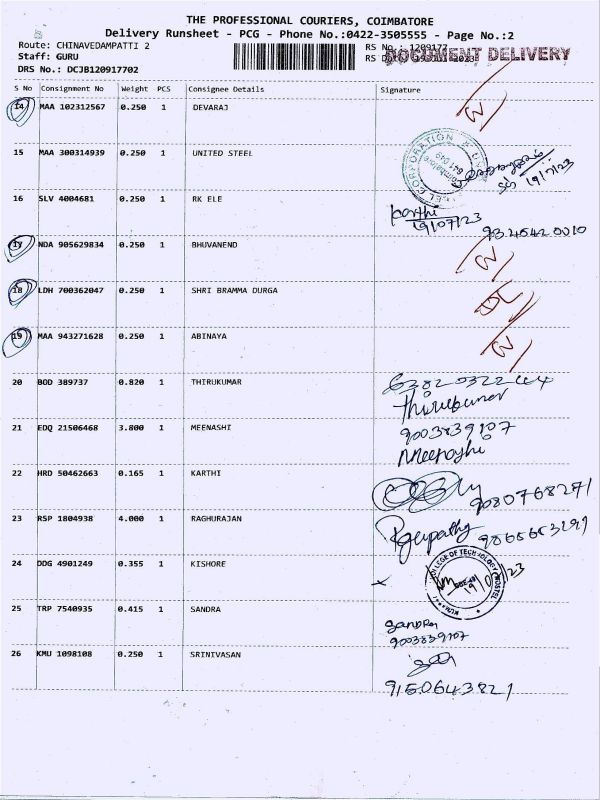 THE PROFESSIONAL COURIERS, COIMBATORE
Delivery Runsheet - PCG - Phone No.:0422-3505555 - Page No.:2
Route: CHINAVEDAMPATTI 2
RS No.: 1209177
DOCUMENT DELIVERY
Staff: GURU
DRS No.: DCJB120917702
S No Consignment No Weight PCS Consignee Details Signature
14 MAA 102312567 0.250 1 DEVARAJ
15 MAA 300314939 0.250 1 UNITED STEEL
19/7/23
16 SLV 4004681 0.250 1 RK ELE
karthi
19/07/23
17 NDA 905629834 0.250 1 BHUVANEND
18 LDH 700362047 0.250 1 SHRI BRAMMA DURGA
19 MAA 943271628 0.250 1 ABINAYA
20 BOD 389737 0.820 1 THIRUKUMAR
Thirukumar
21 EDQ 21506468 3.800 1 MEENASHI
9003839107
Meenashi
22 HRD 50462663 0.165 1 KARTHI
9080768271
23 RSP 1804938 4.000 1 RAGHURAJAN
24 DDG 4901249 0.355 1 KISHORE
COLLEGE OF TECHNOLOGY HOSTEL
25 TRP 7540935 0.415 1 SANDRA
Sandra
9003839107
26 KMU 1098108 0.250 1 SRINIVASAN
9150643821